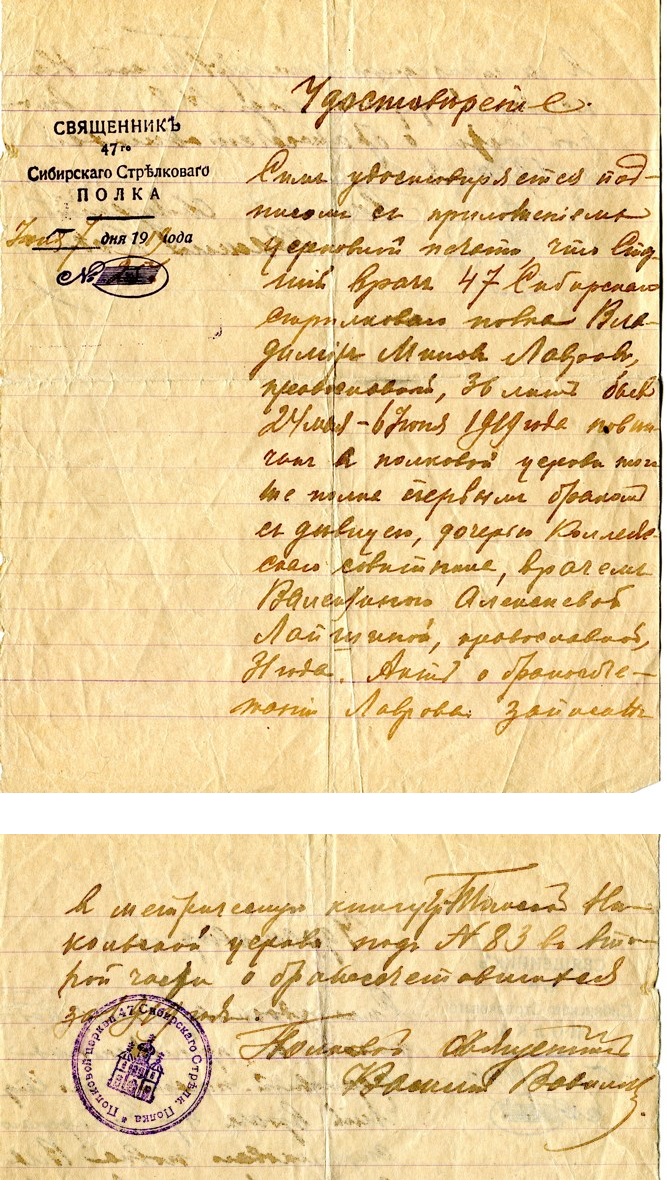 Удостоверение.
СВЯЩЕННИКЪ
47го
Сибирскаго Стрѣлковаго
ПОЛКА
Iюня 7 дня 19 года
№
Симъ удостовѣряется под-
писью съ приложенiемъ
церковной печати что
врачъ 47 Сибирскаго
стрѣлковаго полка Вла-
димiръ Лавровъ,
православный, 36 лѣтъ былъ
24 мая - 6 Iюня 1919 года повѣн-
чанъ въ полковой церкви того
же полка первымъ бракомъ
съ дѣвицею, дочерью Коллеж-
скаго совѣтника, врачемъ
Валентиною Алексѣевой
православной,
31 года. Актъ о бракосоче-
танiи Лаврова записанъ
въ метрическую книгу Ни-
кольской церкви подъ № 83 во вто-
рой части о бракосочетавшихся
за годъ.
Полковой священникъ
Полковой церкви 47 Сибирскаго Стрѣлк. Полка